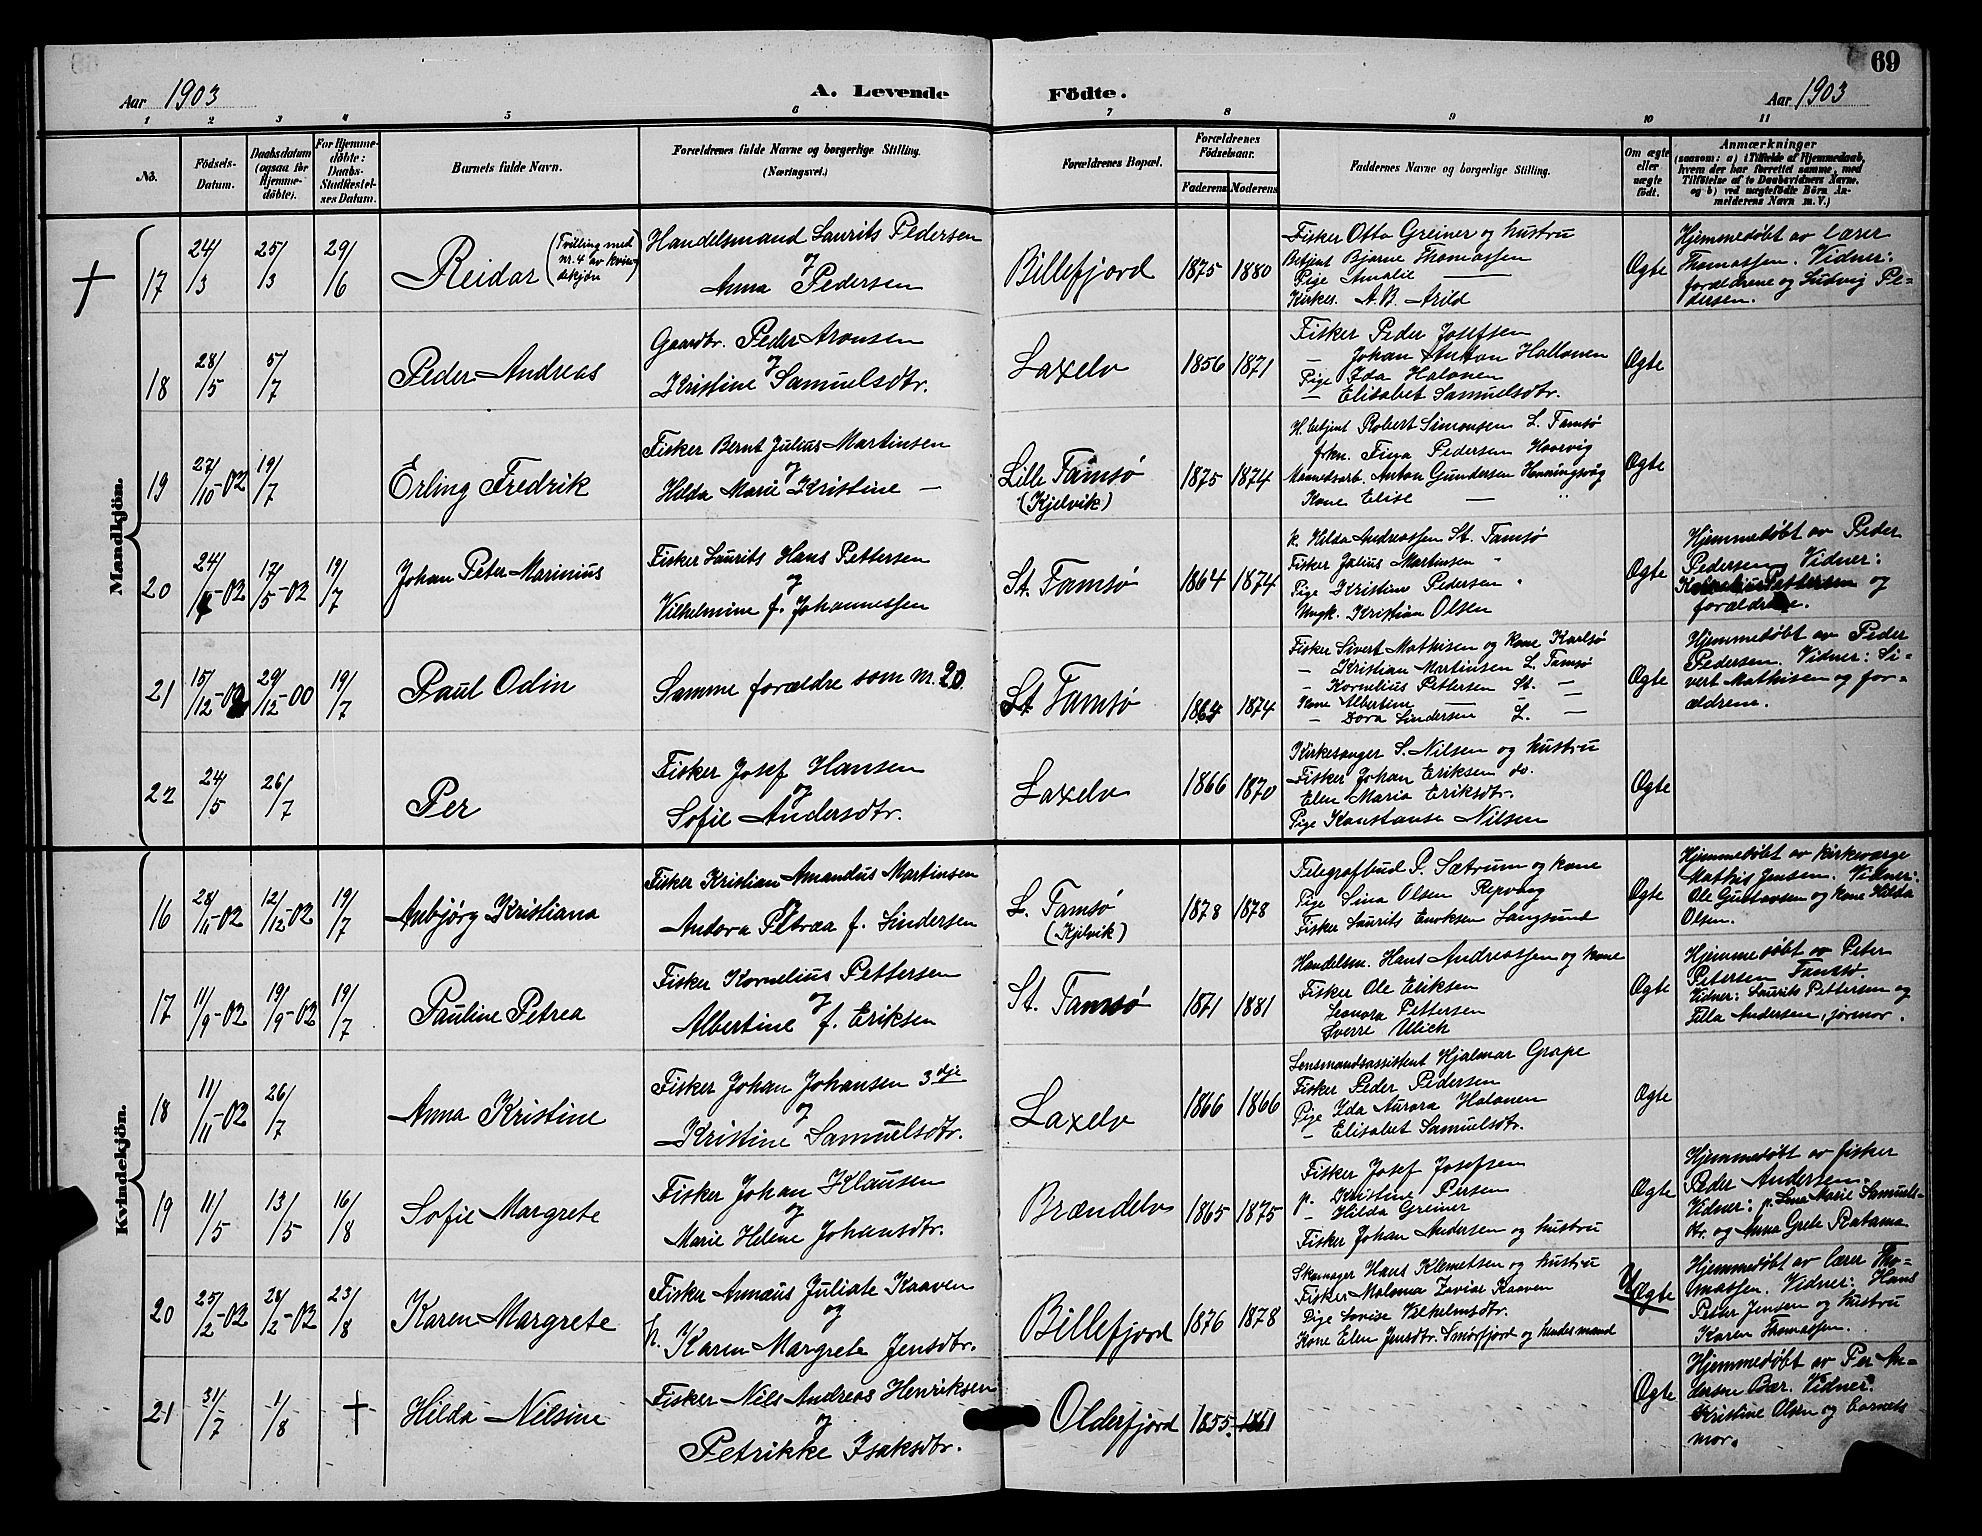 69
Aar 1903
A. Levende Födte.
Aar 1903
1 2 3 4 5 6 7 8 9 10 11
No.
Födsels-Datum.
Daabsdatum (ogsaa for Hjemme-døbte).
For Hjemme-døbte: Daabs-Stadfæstel-ses Datum.
Barnets fulde Navn.
Forældrenes fulde Navne og borgerlige Stilling. (Næringsvei.)
Forældrenes Bopæl.
Forældrenes Födselsaar.
Faderens Moderens
Faddernes Navne og borgerlige Stilling.
Om ægte eller uægte födt.
Anmærkninger
(saasom: a) i Tilfælde af Hjemmedaab,
hvem der har forrettet samme, med
Tilföielse af to Daabsvidners Navne,
og b) ved uægtefödte Börn An-
melderens Navn m. V.)
Mandkjön.
17 24/3 25/3 29/6 Reidar (Tvilling med nr. 4 av kvindekjøn)
Handelsmand Laurits Pedersen
og
Anna Pedersen
Billefjord 1875 1880
Fisker Otto Greiner og hustru
Betjent Bjarne Thomassen
Pige Amalie —
Kirkes. A. B. Arild
Ægte
Hjemmedøbt av lærer
Thomassen. Vidner:
forældrene og Ludvig Pe-
dersen.
18 28/5 5/7 Peder Andreas
Gaardbr. Peder Aronsen
og
Kristine Samuelsdtr.
Laxelv 1856 1871
Fisker Peder Josefsen
— Johan Anton Hallonen
Pige Ida Halonen
— Elisabet Samuelsdtr.
Ægte
19 27/10-02 19/7 Erling Fredrik
Fisker Bernt Julius Martinsen
og
Hilda Marie Kristine —
Lille Tamsø
(Kjelvik)
1875 1874
H. betjent Robert Simonsen L. Tamsø
frkn. Fina Pedersen
Maanedsarb. Anton Gundersen Honningsvåg
Kone Elise — "
Ægte
20 17/5-02 19/7 Johan Peter Marinius
Fisker Laurits Hans Pettersen
og
Vilhelmine f. Johannessen
St. Tamsø 1864 1874
k. Hilda Andreassen St. Tamsø
Fisker Julius Martinsen "
Pige Kristine Pedersen "
Ungk. Kristian Olsen
Ægte
Hjemmedøbt av Peder
Pedersen. Vidner:
Pettersen og
forældrene.
21 29/12-00 19/7 Paul Odin
Samme forældre som nr. 20
St. Tamsø 1864 1874
Fisker Sivert Mathisen og kone Karlsø
— Kristian Martinsen L. Tamsø
— Kornelius Pettersen St. —
Kone Albertine — —
— Dora Sindersen L. —
Ægte
Hjemmedøbt av Peder
Pedersen. Vidner: Si-
vert Mathisen og for-
ældrene.
22 24/5 26/7 Per
Fisker Josef Hansen
og
Sofie Andersdtr.
Laxelv 1866 1870
Kirkesanger S. Nilsen og hustru
Fisker Johan Eriksen do.
Elen Maria Eriksdtr.
Pige Konstanse Nilsen
Ægte
Kvindekjön.
16 28/11-02 12/12-02 19/7 Anbjørg Kristiana
Fisker Kristian Amandus Martinsen
og
Andora Petræa f. Sindersen
L. Tamsø
(Kjelvik)
1878 1878
Telegrafbud P. Sætrum og kone
Pige Sina Olsen Repvåg
Fisker Laurits Enoksen Langsund
Ægte
Hjemmedøbt av kirkeværge
Mathis Jensen. Vidner:
Ole Gustavsen og kone Hilda
Olsen.
17 11/9-02 19/9-02 19/7 Pauline Petrea
Fisker Kornelius Pettersen
og
Albertine f. Eriksen
St. Tamsø 1871 1881
Handelsm. Hans Andreassen og kone
Fisker Ole Eriksen
Leonora Pettersen
Sverre Ulich
Ægte
Hjemmedøbt av Peter
Petersen Tamsø.
Vidner: Laurits Pettersen og
Tella Andersen, jormor.
18 11/11-02 26/7 Anna Kristine
Fisker Johan Johansen 3dje
og
Kristine Samuelsdtr.
Laxelv 1866 1866
Lensmandsassistent Hjalmar Grape
Fisker Peder Pedersen
Pige Ida Aurora Halonen
— Elisabet Samuelsdtr.
Ægte
19 11/5 13/5 16/8 Sofie Margrete
Fisker Johan Klausen
og
Marie Helene Johansdtr.
Brændelv 1865 1875
Fisker Josef Josefsen
p. Kristine Persen
— Hilda Greiner
Fisker Johan Andersen og hustru
Ægte
Hjemmedøbt av fisker
Peder Andersen.
Vidner: p. Lena Marie Samuels-
dtr. og Anna Grete Ratama
20 25/2-02 28/2-02 23/8 Karen Margrete
Fisker Annæus Juliate Kaaven
og
p. Karen Margrete Jensdtr.
Billefjord 1876 1878
Skomager Hans Klemetsen og hustru
Fisker Malona Zavise Kaaven
Pige Lovise Vilhelmsdtr.
Kone Elen Jensdtr. Smørfjord og hendes mand
Uægte
Hjemmedøbt av lærer Tho-
massen. Vidner: Hans
Peter Jensen og hustru
Karen Thomassen.
21 31/7 1/8 Hilda Nilsine
Fisker Nils Andreas Henriksen
og
Petrikke Isaksdtr.
Olderfjord 1855 1861
Ægte
Hjemmedøbt av Per An-
dersen Bær. Vidner:
Kristine Olsen og barnets
mor.